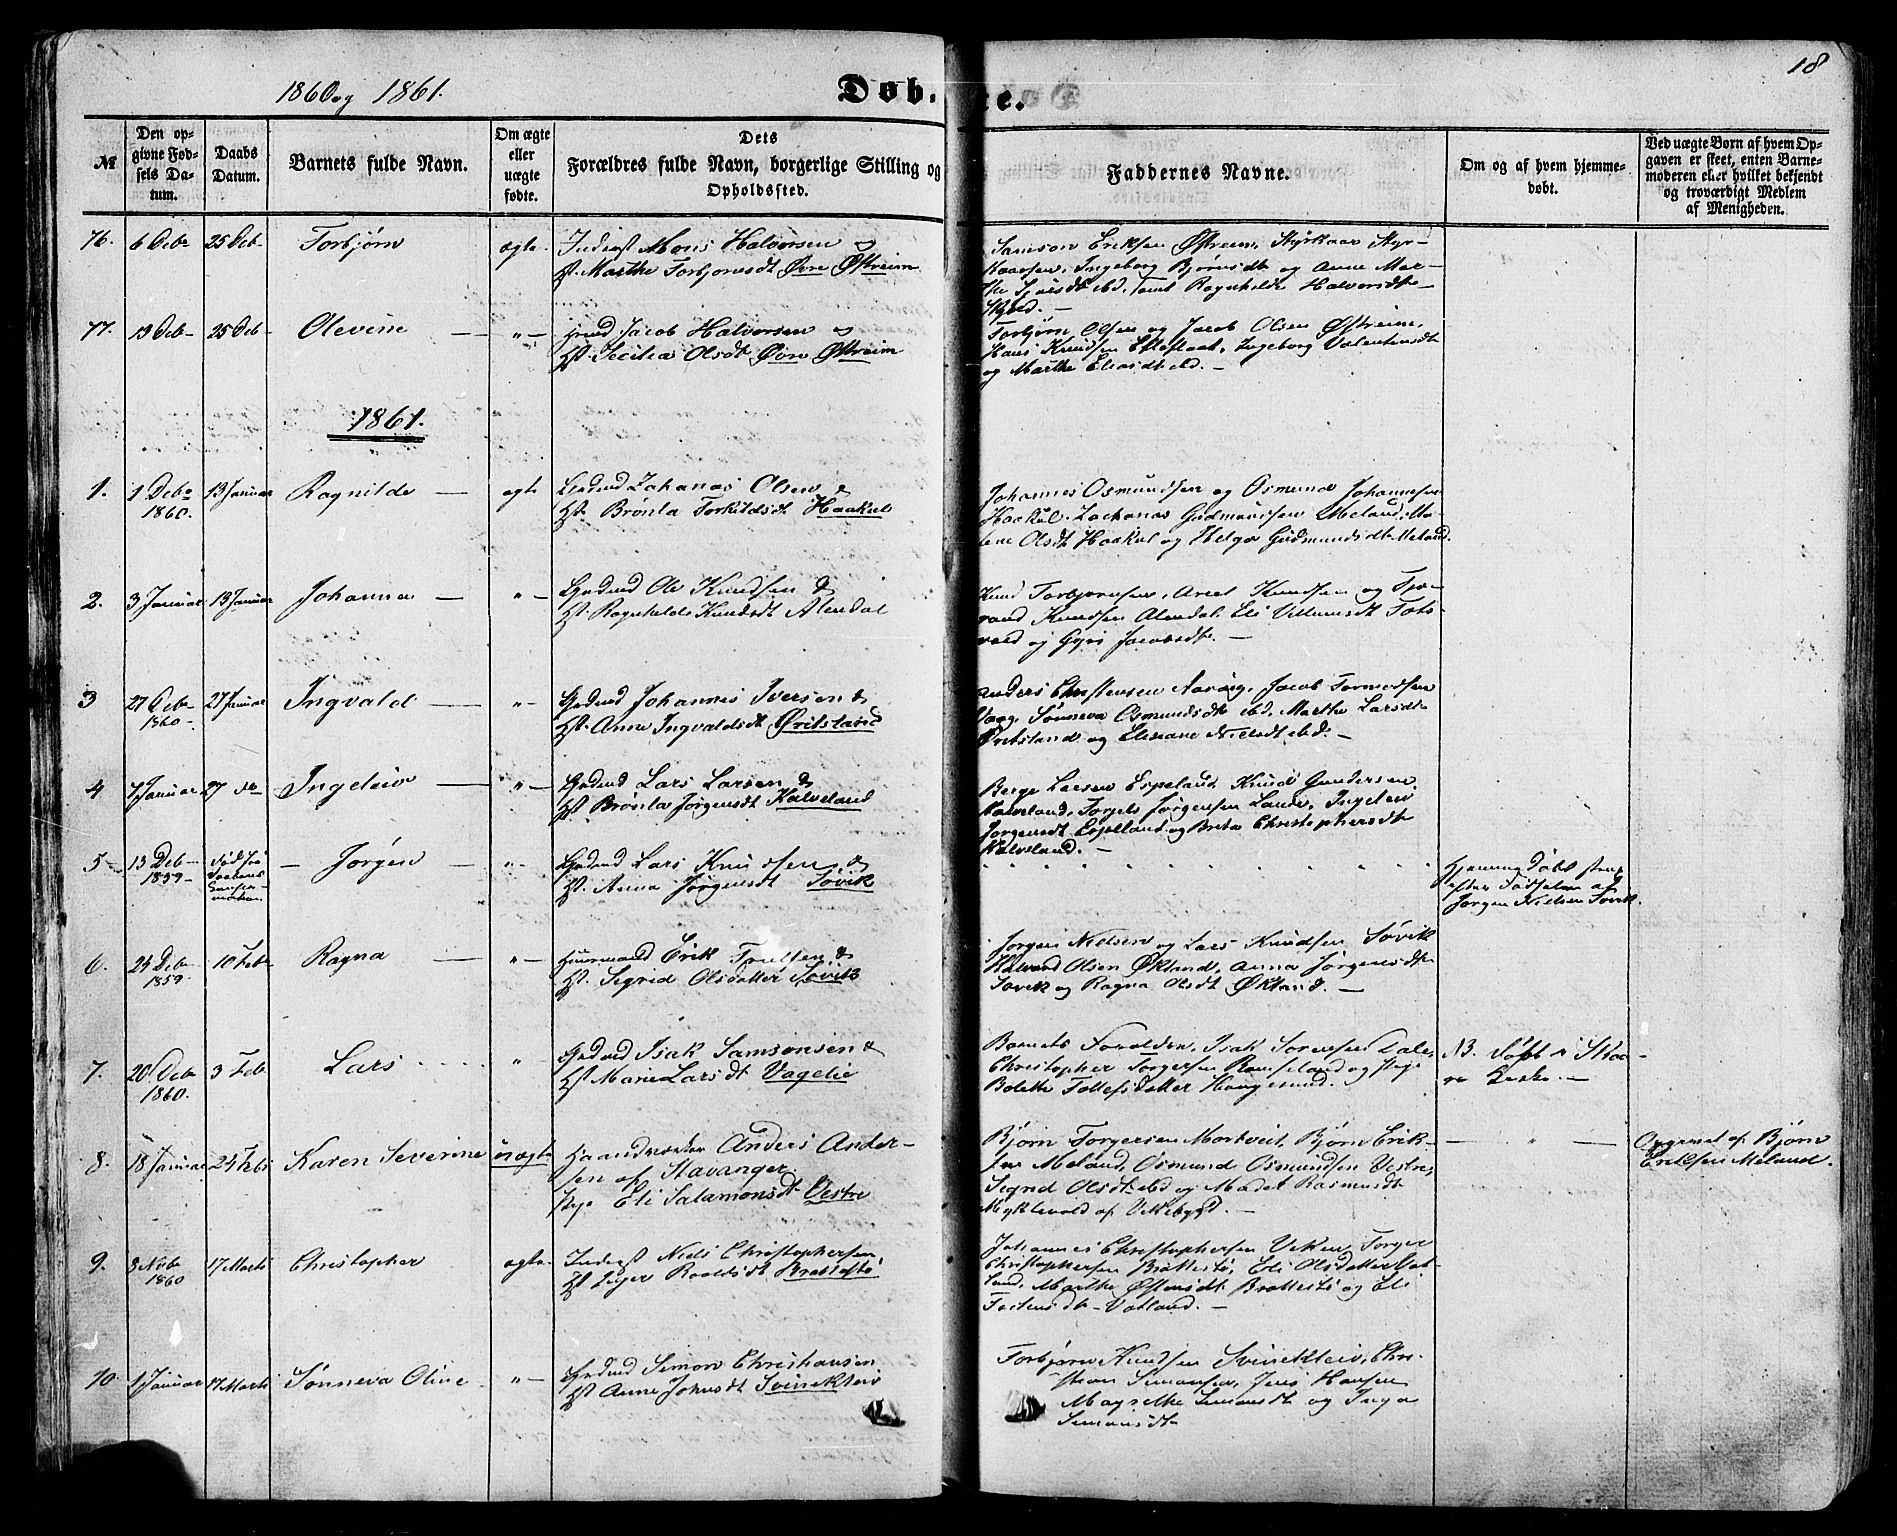 18
1860 og 1861.
Døb.te.
№
Den op-
givne Fød-
sels Da-
tum.
Daabs
Datum.
Barnets fulde Navn.
Om ægte
eller
uægte
fødte.
Dets
Forældres fulde Navn, borgerlige Stilling og
Opholdssted.
Faddernes Navne.
Om og af hvem hjemme-
døbt.
Ved uægte Børn af hvem Op-
gaven er skeet, enten Barne-
moderen eller hvilket bekjendt
og troværdigt Medlem
af Menigheden.
76. 6 Debr 25 Debr Torbjørn ægte
Inderst Mons Halvorsen &
Hst. Marthe Torbjørnsdt Øvre Østreim
Samson Eriksen Østreim, Styrkaar Styr-
kaarsen, Ingeborg Bjørnsdtr og Anne Mar-
the ibd, samt Ragnhilde Halvorsdtr
77. 13 Debr 25 Debr Olevine — " —
Jacob Halvorsen &
Hst. Secilia Olsdt Øvre Østreim
Torbjørn Olsen og Jacob Olsen Østreim,
Hans Knudsen, Ingeborg Valentinsdtr
og Marthe Eliasdtr ibd. —
1861.
1. 1 Debr 1860. 13 Januar Ragnilde — ægte
Gbdmd Zakarias Olsen &
Hst. Brønla Torkildsdt Haakul
Johannes Osmundsen og Osmund Johannesen
Haakul, Zacharias Gudmundsen Meland, Ma-
lene Olsdt Haakul og Helga Gudmundsdtr Meland.
2. 3 Januar 13 Januar Johanna — " —
Gbdmd Ole Knudsen &
Hst. Ragnhilde Knudsdt Alendal
Knud Torbjørnsen, Knudsen og
Knudsen Alendal, Eli Villumsdt
og Gyri Jacobsdtr. —
3 27 Debr 1860. 27 Januar Ingvald — " —
Gbdmd Johannes Iversen &
Hst. Anne Ingvaldsdt Qvitsland
Anders Christensen Aarvig, Jacob Tormodsen
Vaag, Sønneva Osmundsdtr ibd, Marthe Larsdtr
Qvitsland og Elisane Nielsdt ibd. —
4 7 Januar 27 do Ingeleiv — " —
Gbdmd Lars Larsen &
Hst. Brønla Jørgensdt Kalveland
Berge Larsen Espeland, Knud Gundersen
Kalveland, Torgels Jørgensen Lande, Ingeleiv
Jørgensdt Espeland og Brita Christophersdtr
Kalveland. —
5 13 Debr 1859 — Jørgen — " —
Gbdmd Lars Knudsen &
Hst. Anna Jørgensdt Søvik
Hjemmedøbt strax
efter Fødselen af
Jørgen Nielsen Søvik.
6. 24 Debr 1859 10 Febr Ragna — " —
Huusmand Erik Troelsen &
Hst. Segrid Olsdatter Søvik
Jørgen Nielsen og Lars Knudsen Søvik
Halvard Olsen Økland, Anna Jørgensdtr
Søvik og Ragna Olsdt Økland. —
7. 20 Debr 1860. 3 Feb Lars "
Gbdmd Isak Samsonsen &
Hst. Marie Larsdt Vagelie
Barnets Forældre, Isak Sørensen Dale,
Christopher Torgersen Ramsland og Pige
Bolethe Tollefsdatter Haugesund. —
NB. Døbt i Skaa-
re Kirke. —
8. 18 Januar 24 Febr Karen Severine uægte
Haandværker Anders Ander-
sen af Stavanger.
Pige Eli Salamonsdt Vestre
Bjørn Torgersen Mortveit, Bjørn Erik-
sen Meland, Osmund Osmundsen Vestre,
Segrid Olsdtr ibd og Madel Rasmusdt
Myklevold af Vikebygd. —
— " —
Opgivet af Bjørn
Eriksen Meland.
9. 8 Novbr 1860 17 Marts Christopher ægte
Inderst Niels Christophersen,
Hst. Roaldsdt Brattestø
Johannes Christophersen Viken, Torger
Christophersen Brattestø, Eli Olsdatter Vat-
land, Marthe Østensdt Brattestø og Eli
Tostensdtr Vatland. —
10 1 Januar 17 Marts Sønneva Oline — " —
Gbdmd Simon Christiansen
Hst. Anne Johnsdt Svinekleiv
Torbjørn Knudsen Svinekleiv, Chri-
stian Simonsen, Jens Hansen
Magrethe Simonsdt og Inga
Simonsdtr